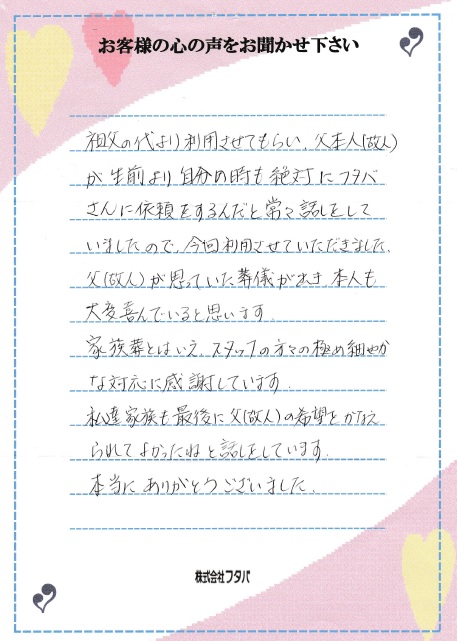 お客様の心の声をお聞かせ下さい
祖父の代より利用させてもらい、父本人(故人)
が生前より自分の時も絶対にフタバ
さんに依頼をするんだと常々話しをして
いましたので、今回利用させていただきました。
父(故人)が思っていた葬儀が出き本人も
大変喜んでいると思います。
家族葬とはいえ、スタッフの方々の極め細やか
な対応に感謝しています。
私達家族も最後に父(故人)の希望をかなえ
られてよかったねと話しをしています。
本当にありがとうございました。
株式会社フタバ